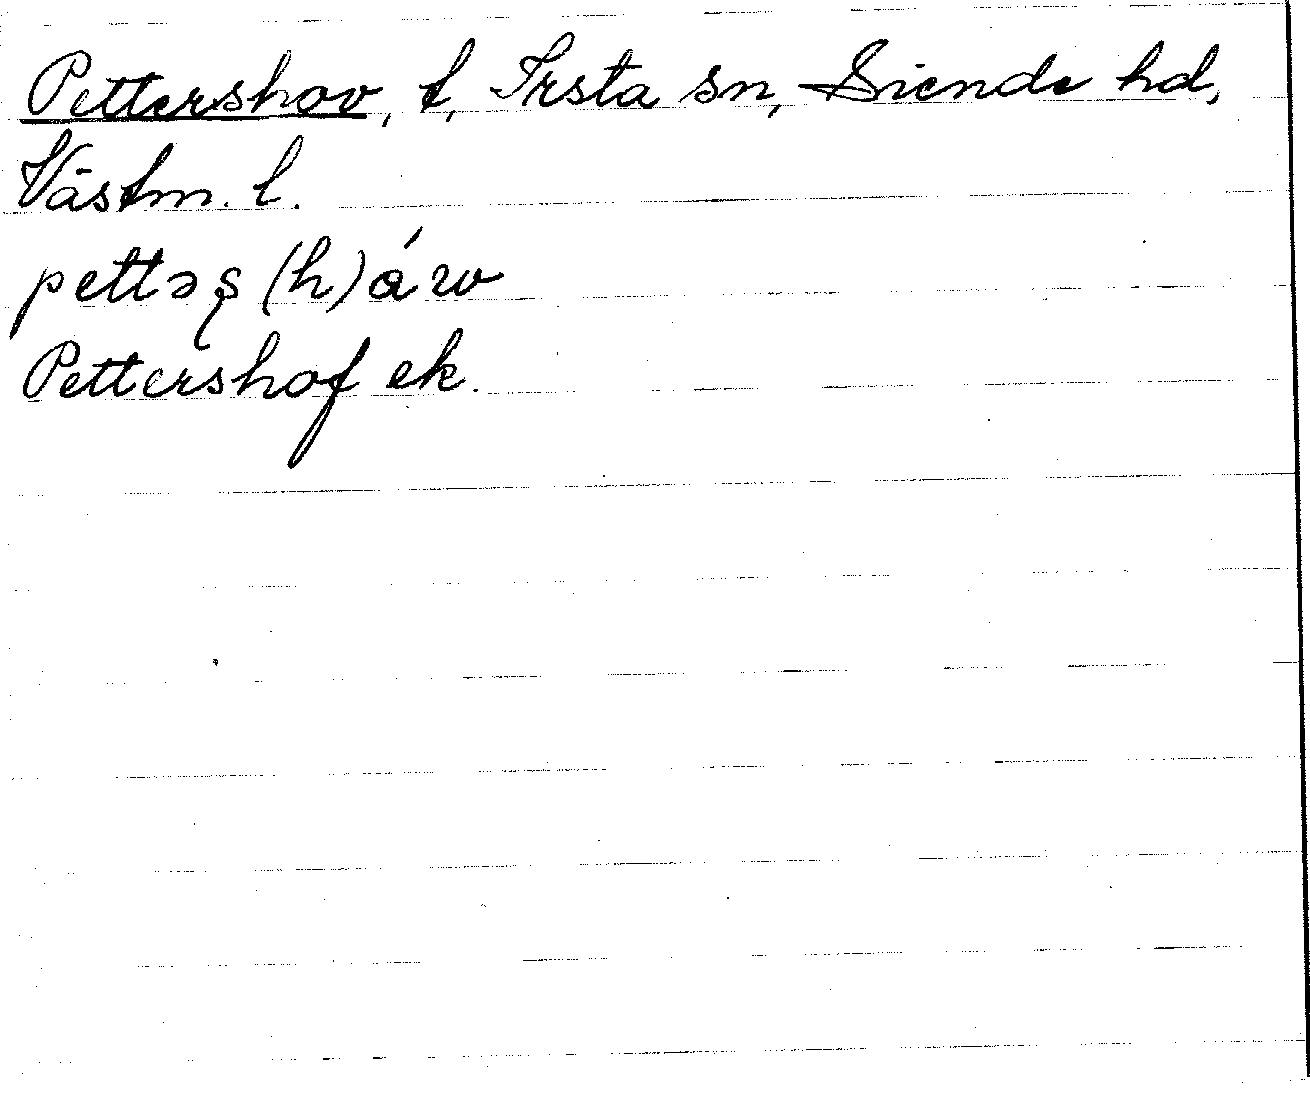 Pettershov, t, Irsta sn, Siende hd,
Västm. l.
pettəʂ (h)áw
Pettershof ek.